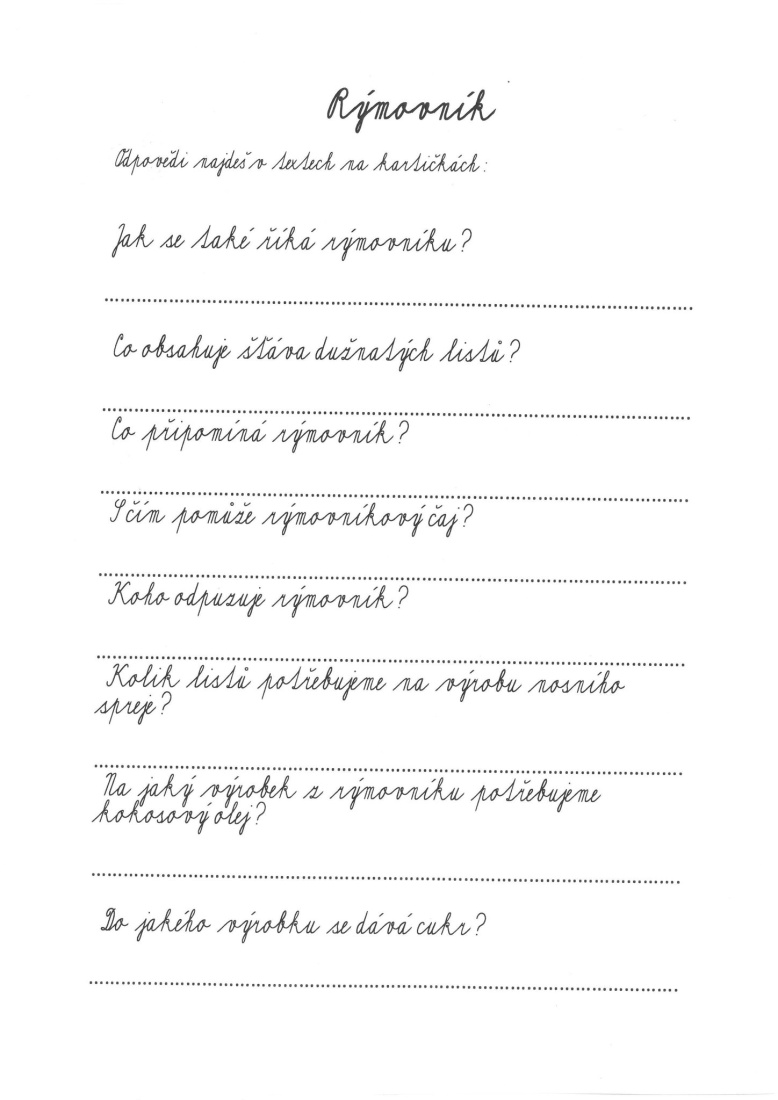 Rýmovník
Odpovědi najdeš v textech na kartičkách:
Jak se také říká rýmovníku?
Co obsahuje šťáva dužnatých listů?
Co připomíná rýmovník?
S čím pomůže rýmovníkový čaj?
Koho odpuzuje rýmovník?
Kolik listů potřebujeme na výrobu nosního
spreje?
Na jaký výrobek z rýmovníku potřebujeme
kokosový olej?
Do jakého výrobku se dává cukr?